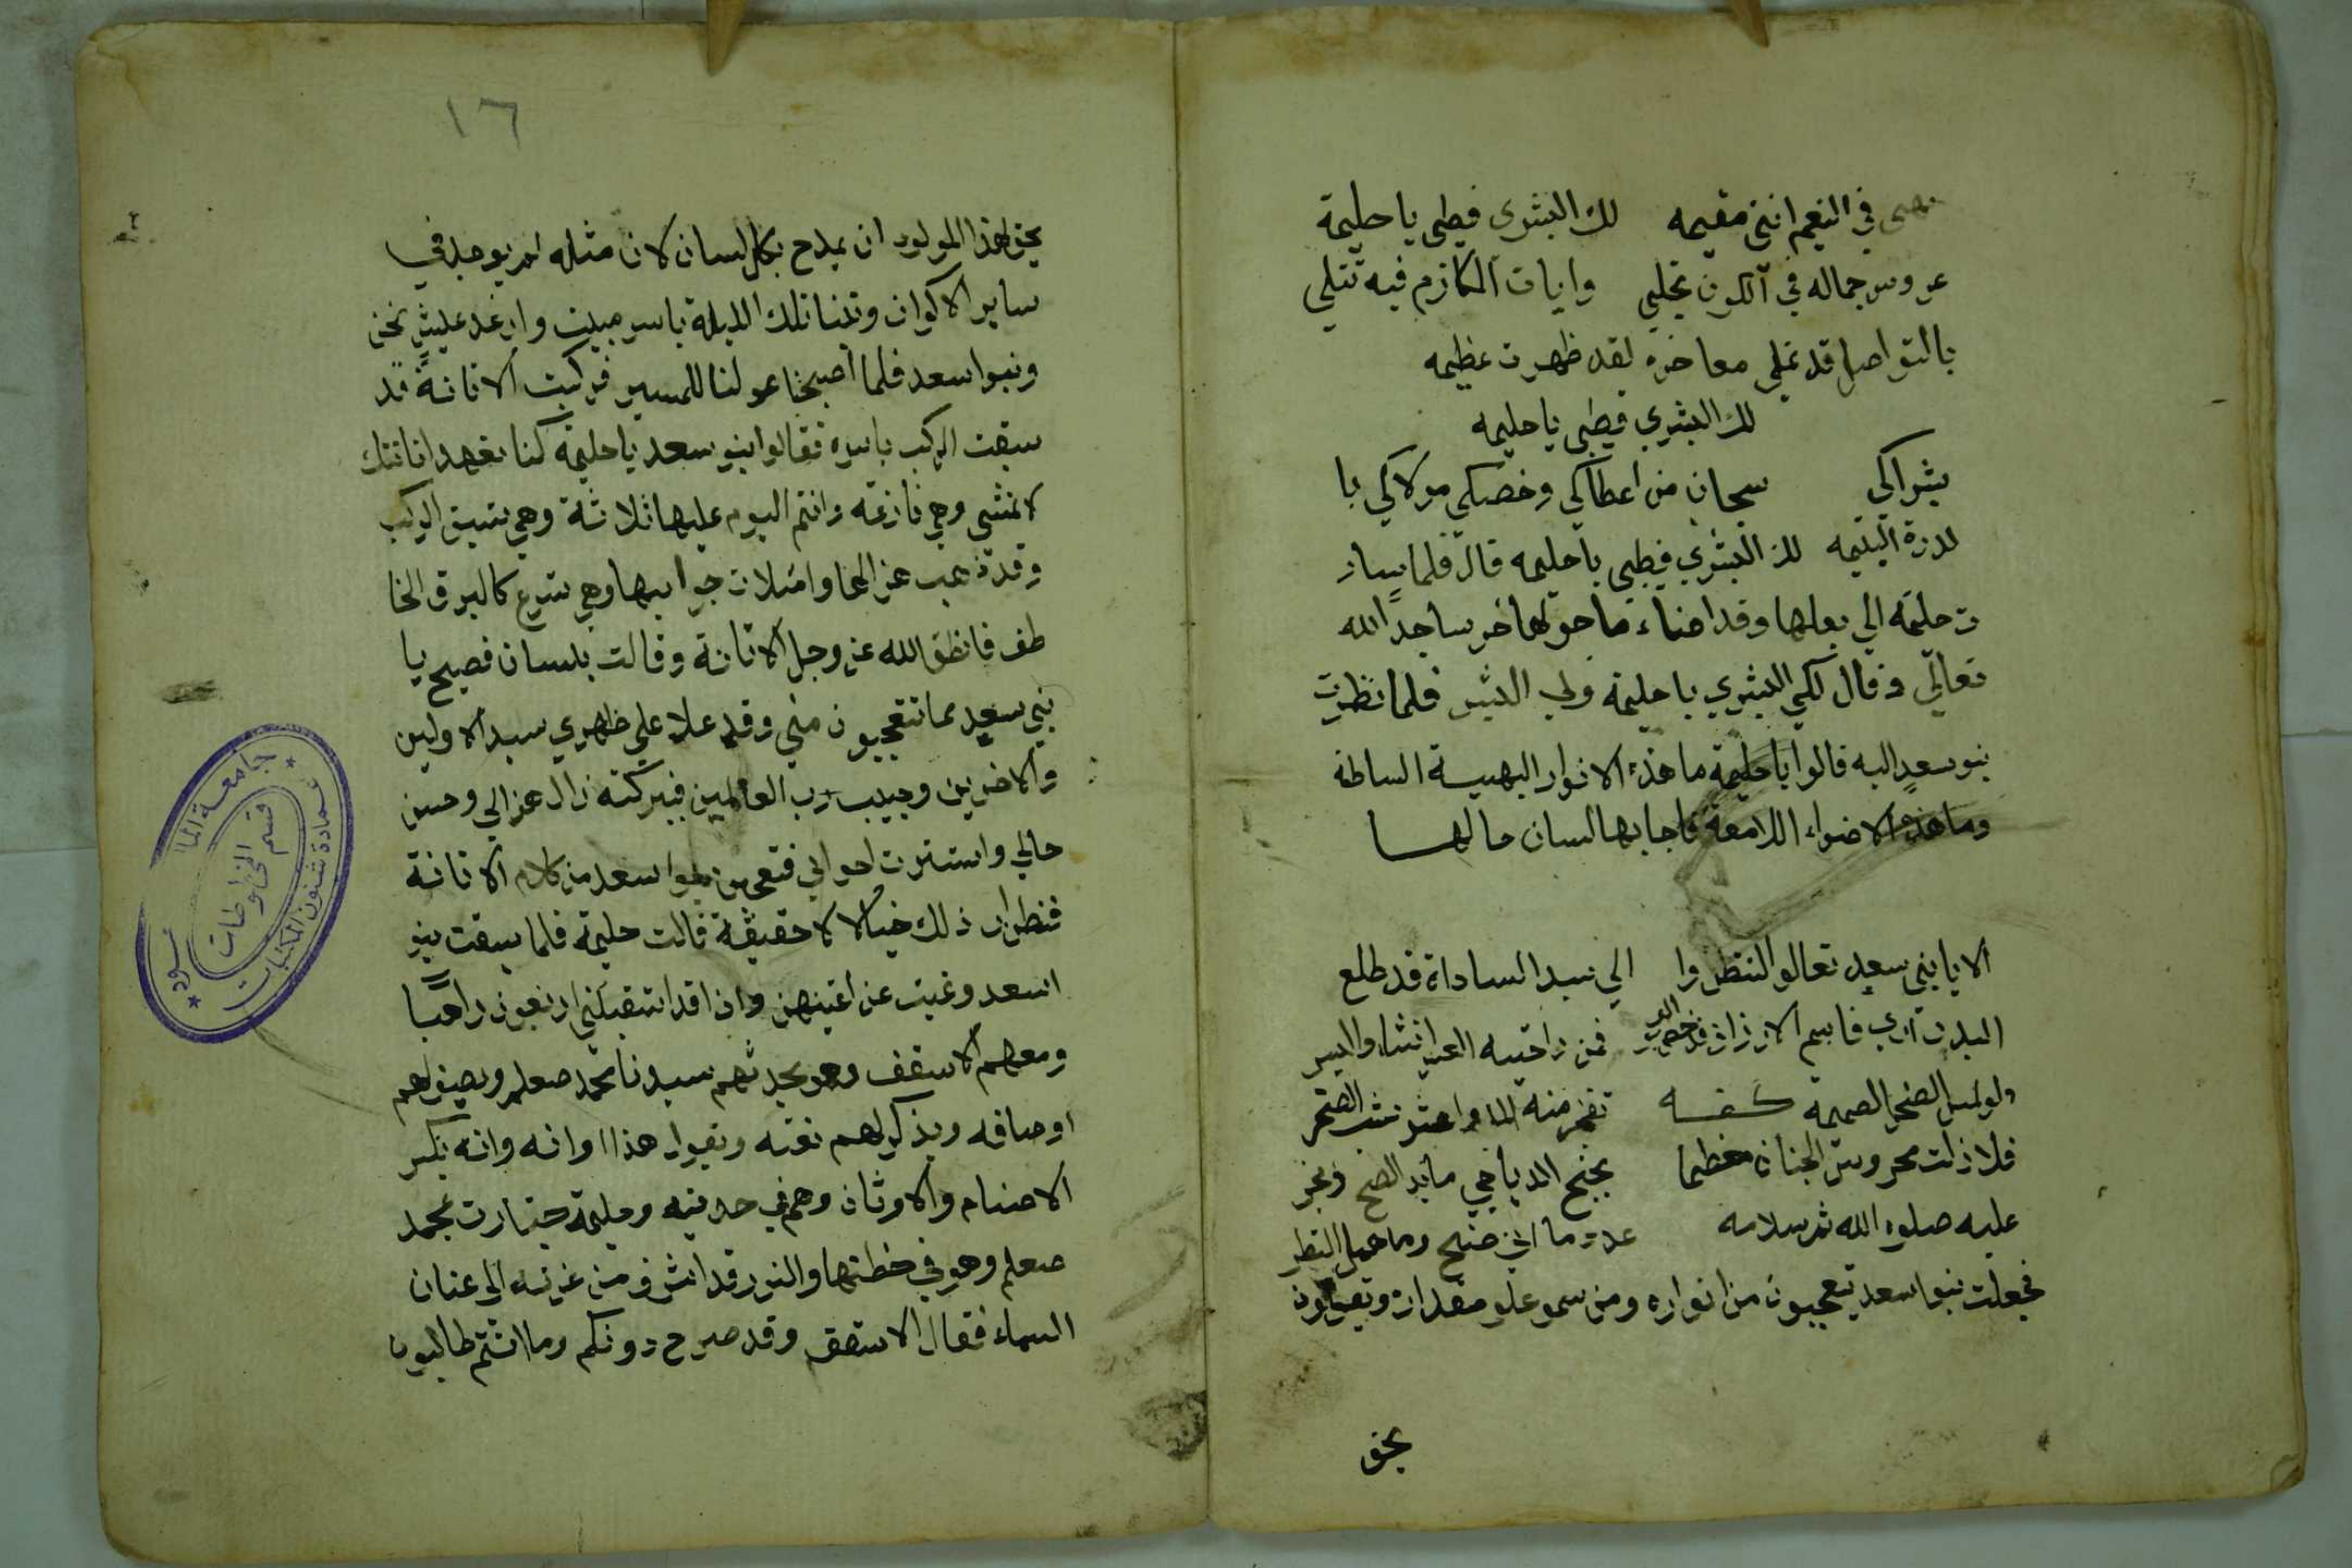 في النعيم انني مقيمه لك البشرى فطبي يا حليمة
عروس جماله في الكون تجلي وايات المكارم فيه تتلي
بالتواصل قد تملي معاخره لقد ظهرت عظيمه
لك البشري فطبي يا حليمه
بشراكي سبحان من اعطاكي وخصكي مولاكي يا
لدرة اليتيمه لك البشري فطبي يا حليمه قال فلما سار
ت حليمه الي بعلها وقد اضاء ما حولها خر ساجدا لله
تعالي وقال لكي البشري يا حليمة ولي البشر فلما نظرت
بنو سعد اليه قالوا يا حليمة ما هذه الانوار البهية الساطه
وما هذه الاضواء اللامعة فاجابها لسان حالها
الا يا بني سعد تعالو النظروا الي سيد الساداة قد طلع
البدر قاسم الارزاق فمن راحتيه العسر انشا واليسر
ولو لمس الصخر الصميمة كفه تفجر منه الما واعشوشب الصخر
فلا زلت محروس الجنان معظما بجنح الدياجي ما بدا الصبح
عليه صلوه الله ثم سلامه عدد ما وما هطل القطر
فجعلت بنوا سعد يتعجبون من انواره ومن سمو علو مقداره ويقولون
بحق
١٦
بحق لهذا المولود ان يمدح بكل لسان لان مثله لم يوجد في
ساير الاكوان وتمنا تلك الليلة باسر مبيت وارغد عيش نحن
وبنوا سعد فلما اصبحنا عولنا للمسير فركبت الاتانة قد
سبقت الركب باسره فقالوا بنو سعد يا حليمة كنا نعهد اتانتك
لا تمشي وهي فازعه وانتم اليوم عليها ثلاثة وهي تسبق الركب
وقد ذهب عنها وامتلات جوانبها وهي تسرع كالبرق الخا
طف فانطق الله عز وجل الاتانة وقالت بلسان فصيح يا
بني سعد مما تتعجبون مني وقد علا علي ظهري سيد الاولين
والاخرين وحبيب رب العالمين فببركته زال عزالي وحسن
حالي واستترت احوالي فتعجبن بنوا سعد من كلام الاتانة
فنطوا ذلك خيالا لا حقيقة قالت حليمة فلما سبقت بنو
اسعد وغيت عن اعينهن واذا قد استقبلني اربعون راهبا
ومعهم الاسقف وهو يحدثهم سيدنا محمد صعلم ويصف لهم
اوصافه ويذكر لهم نعته ويقول هذا اوانه وانه يكسر
الاصنام والاوثان وهم في حديثه وحليمة جتازت بمحمد
صعلم وهو في خطتها والنور قد اشرق من غرته الي عنان
السماء فقال الاسقف وقد صرح دونكم وما انتم طالبون
جامعة الملك سعود
عمادة شئون المكتبات
قسم المخطوطات